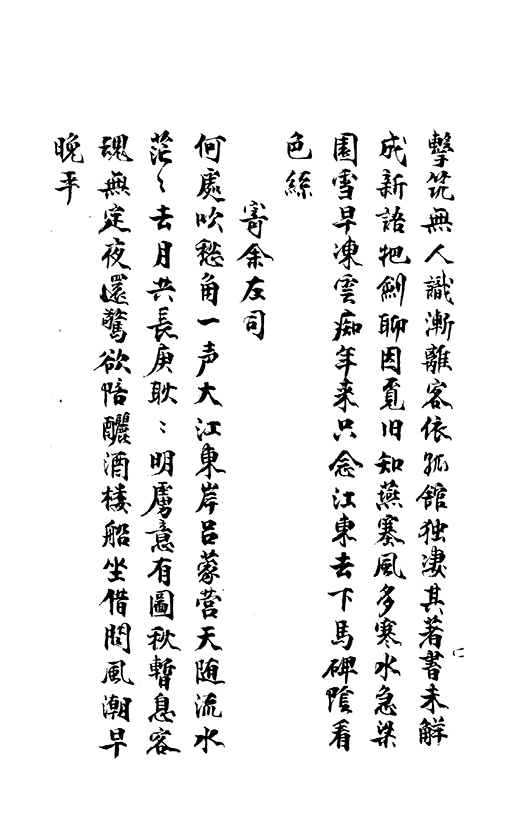 擊筑無人識漸離客依孤館独淒其著書未解
成新語把劍聊因覓旧知燕塞風多寒水急梁
園雪早凍雲痴年来只念江東去下馬碑陰看
色絲
寄余左司
何處吹愁角一声大江東岸呂蒙营天随流水
茫〻去月共長庚耿〻明虜意有圖秋暫息客
魂無定夜還驚欲陪釃酒楼船坐借問風潮早
晚平